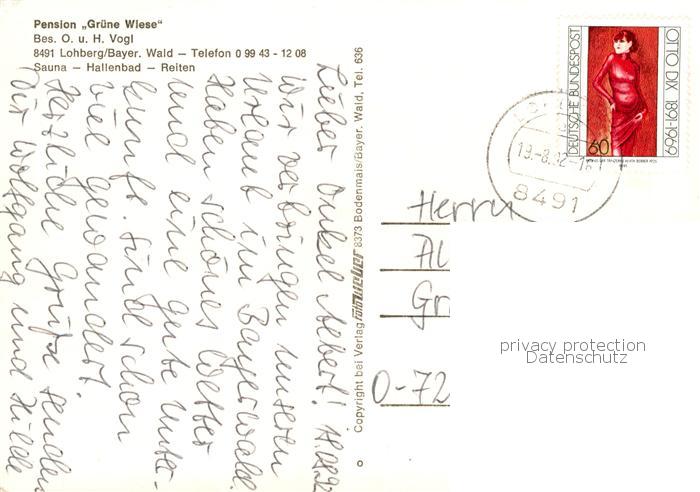 Pension „Grüne Wiese“
Bes. O. u. H. Vogl
8491 Lohberg/Bayer. Wald – Telefon 0 99 43 - 12 08
Sauna – Hallenbad – Reiten
Lieber Onkel Albert!
Wir verbringen unseren
Urlaub im Bayerwald.
Haben schönes Wetter
und eine gute Unter-
kunft. Sind schon
viel gewandert.
Herzliche Grüße senden
Dir Wolfgang und Hilde
Copyright bei Verlag 8373 Bodenmais/Bayer. Wald, Tel. 636
DEUTSCHE BUNDESPOST
OTTO DIX 1891-1969
60
19.-8.92-1
8491
Herrn
Al
Gr
O-72
privacy protection
Datenschutz